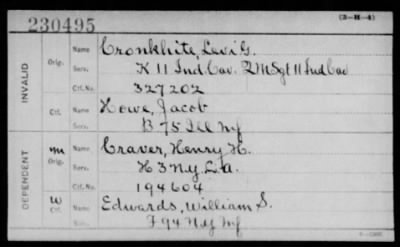 230495
(3-H-4)
INVALID
Orig. Name Cronkhite, Levi G.
Serv. K 11 Ind Cav. 2 M Sgt 11 Ind Cav
Ctf. No. 327202
Ctf. Name Howe, Jacob
Serv. B 75 Ill Inf
DEPENDENT
m Orig. Name Craver, Henry H.
Serv. H 3 N.Y. L.A.
Ctf. No. 194604
W Ctf. Name Edwards, William S.
Serv. F 94 N.Y. Inf